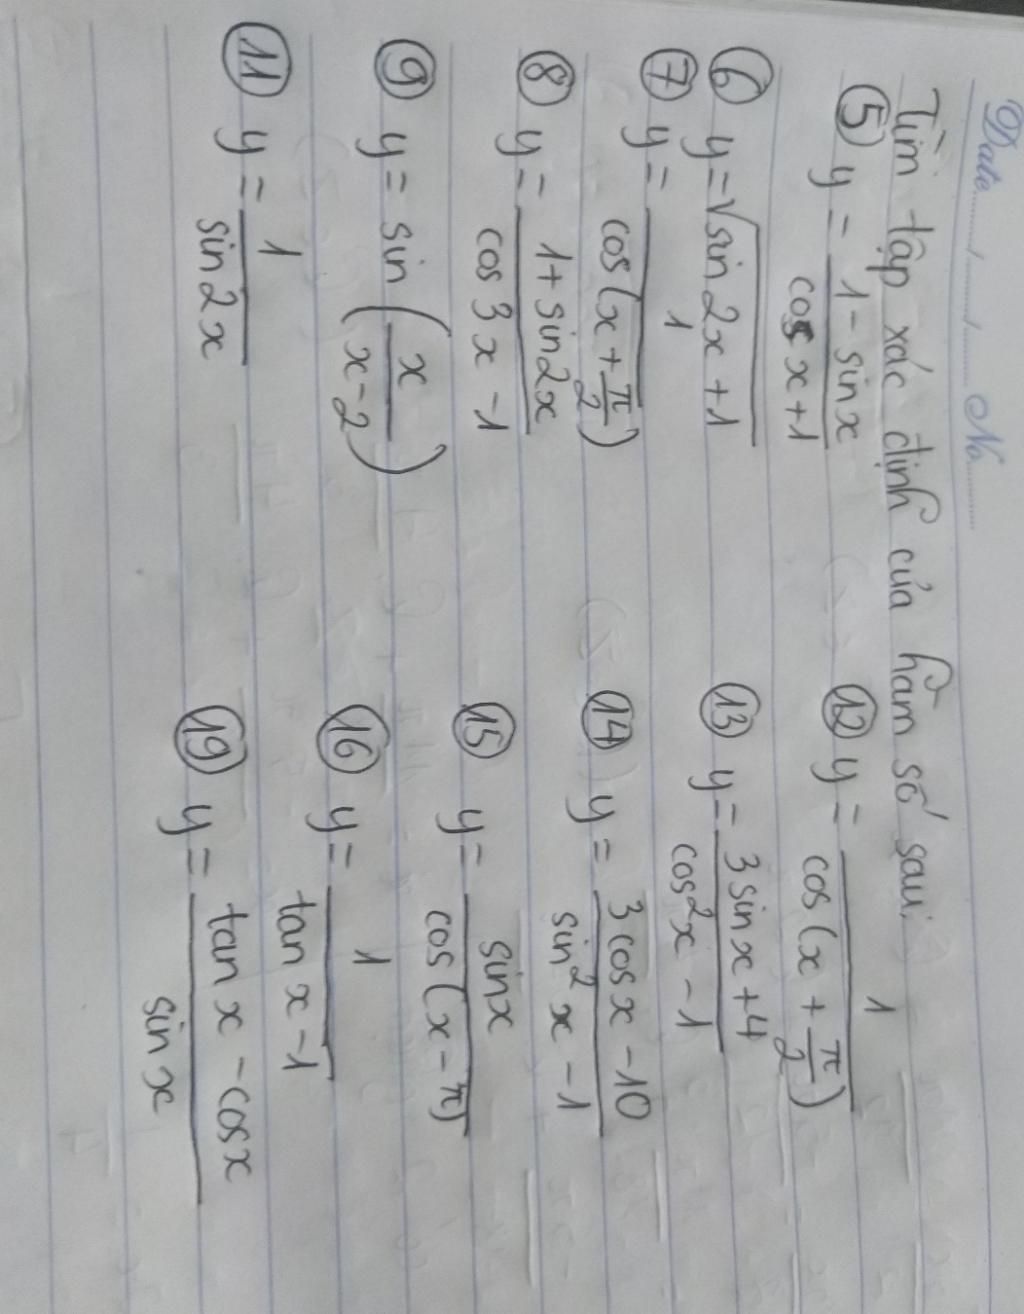 Date ......./......./....... No. ..........
Tìm tập xác định của hàm số sau:
⑤ y = (1 - sin x)/(cos x + 1)
⑥ y = √(sin 2x + 1)
⑦ y = 1/(cos(x + π/2))
⑧ y = (1 + sin 2x)/(cos 3x - 1)
⑨ y = sin (x/(x - 2))
⑪ y = 1/(sin 2x)
⑫ y = 1/(cos(x + π/2))
⑬ y = (3 sin x + 4)/(cos² x - 1)
⑭ y = (3 cos x - 10)/(sin² x - 1)
⑮ y = sin x/(cos(x - π))
⑯ y = 1/(tan x - 1)
⑲ y = (tan x - cos x)/(sin x)